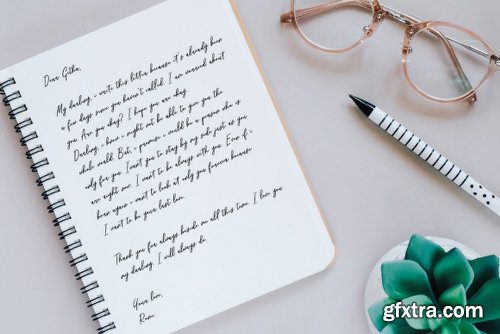 Dear Githa,
My darling, i write this letter because it's already been
a few days since you haven't called. I am worried about
you. Are you okay? I hope you are okay.
Darling, i know i might not be able to give you the
whole world. But, i promise i would be a person who is
only for you. I want you to stay by my side just as you
are right now. I want to be always with you. Even if i
born again i want to look at only you forever because
I want to be your last love.
Thank you for always beside me all this time. I love you
my darling. I will always do.
Your love,
Rem.
gfxtra.com